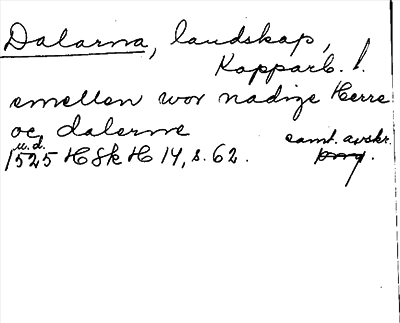 Dalarna, landskap,
Kopparb. l.
emellen wor nadize Herre
oc dalerne
u.d. samt. avskr.
1525 HSkH 14, s. 62.